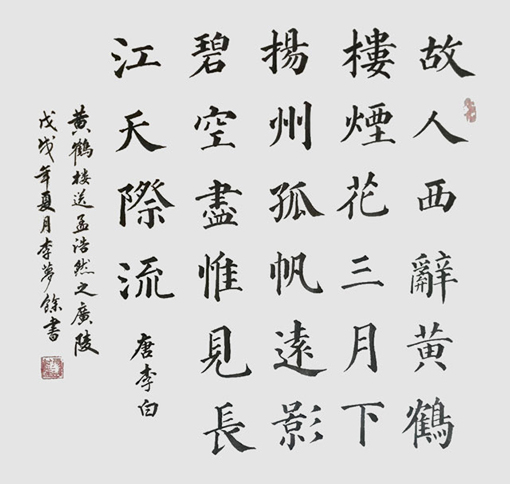 故人西辭黄鶴
樓煙花三月下
揚州孤帆遠影
碧空盡惟見長
江天際流
唐李白
黄鶴樓送孟浩然之廣陵
戊戌年夏月李夢餘書